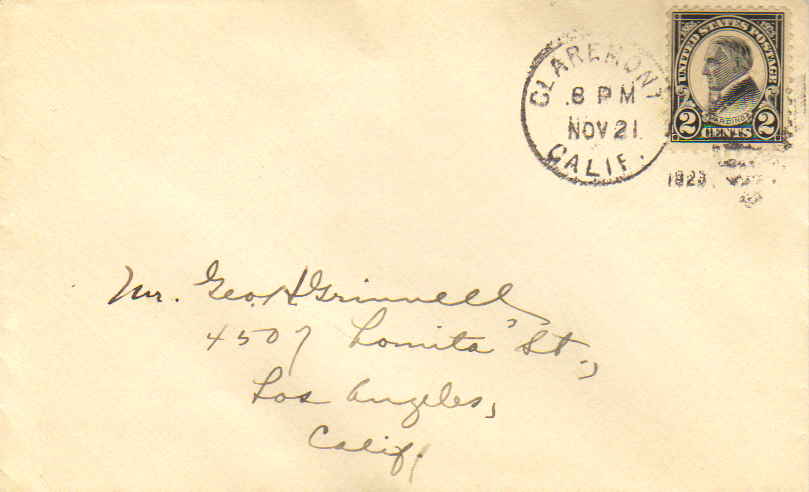 CLAREMONT
8 PM
NOV 21
CALIF.
1923
UNITED STATES POSTAGE
HARDING
2 CENTS 2
Mr. Geo. H. Grinnell,
4507 Lomita St.,
Los Angeles,
Calif.